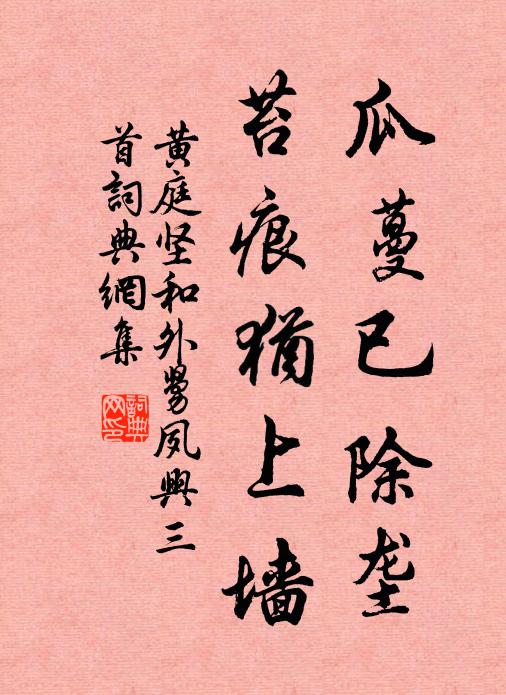 瓜蔓已除垄
苔痕犹上墙
黄庭坚和外舅夙興三
首詞典網集
詞典網印